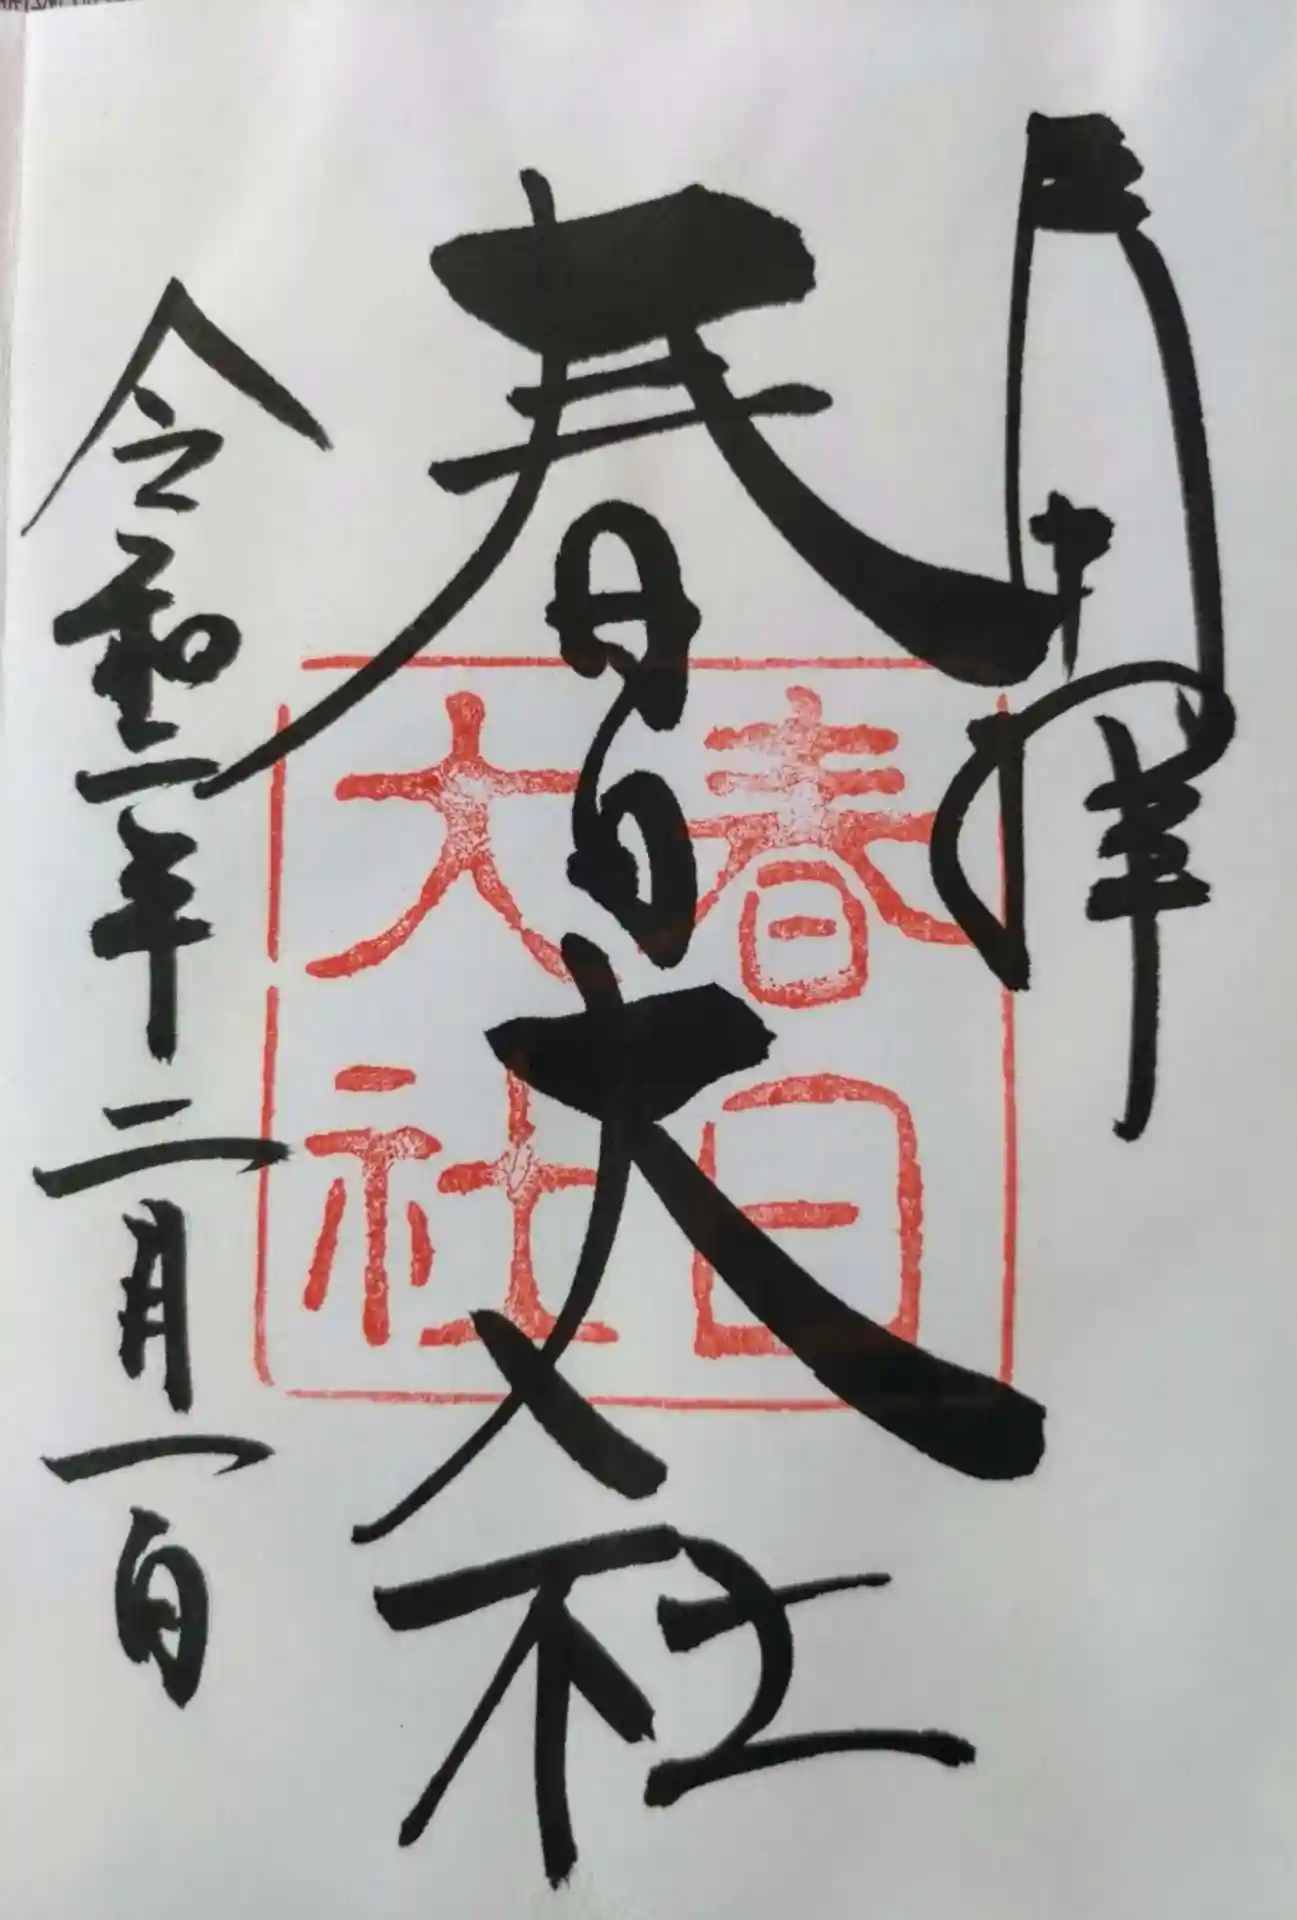 拝
春日大社
令和二年二月一日
春日
大社